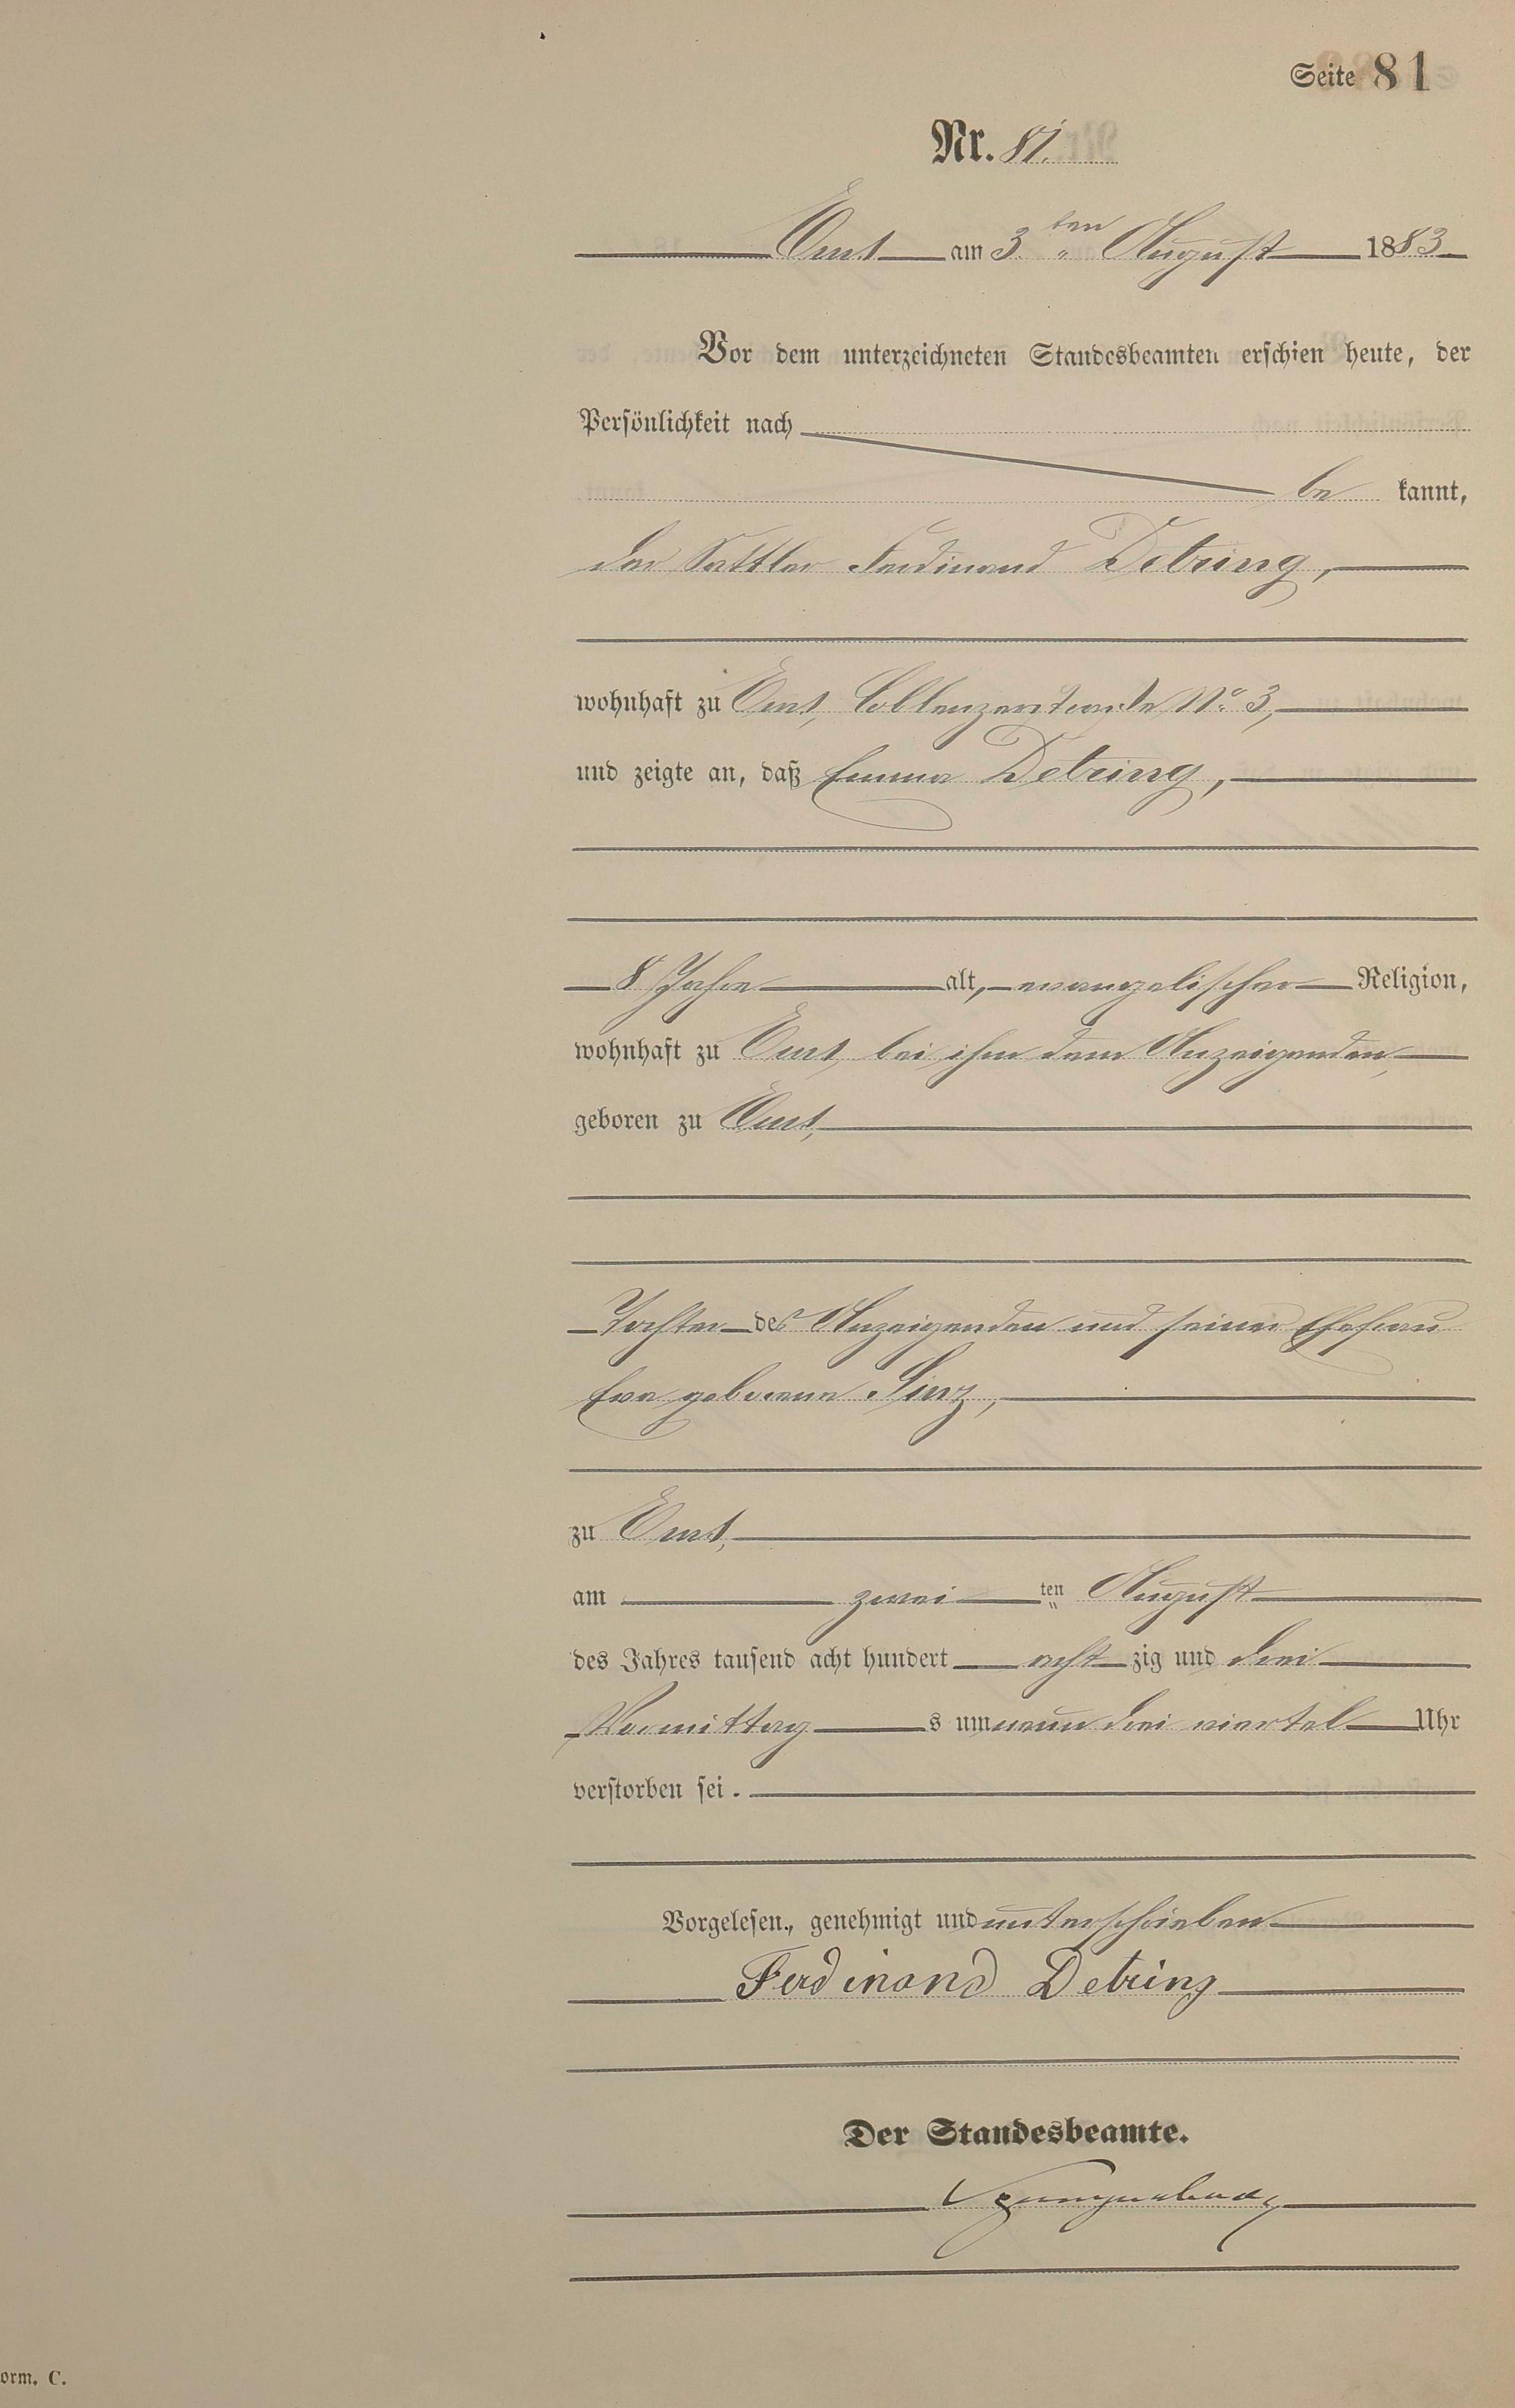 Seite 81
Nr. 81.
Ems am 3ten August 1883.
Vor dem unterzeichneten Standesbeamten erschien heute, der
Persönlichkeit nach
be kannt,
der Sattler Ferdinand Detring,
wohnhaft zu Ems, Coblenzerstraße No. 3,
und zeigte an, daß Emma Detring,
8 Jahre alt, evangelischer Religion,
wohnhaft zu Ems, bei ihm dem Anzeigenden,
geboren zu Ems,
Tochter des Anzeigenden und seiner Ehefrau
Eva geborene
zu Ems,
am zwei ten August
des Jahres tausend acht hundert acht zig und drei
Vormittag s um neun drei viertel Uhr
verstorben sei.
Vorgelesen, genehmigt und unterschrieben
Ferdinand Detring
Der Standesbeamte.
orm. C.